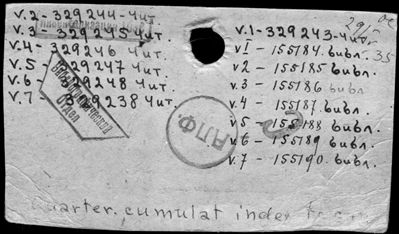 v.2 - 329244 - Чит.
v.3 - 329245 Чит.
v.4 - 329246 Чит.
v.5 - 329247 Чит.
v.6 - 329248 Чит.
v.7 - 329238 Чит.
Отдел
v.1 - 329243 - Чит.
v1 - 155184. Библ.
v2 - 155185 Библ.
v.3 - 155186 Библ
v.4 - 155187. Библ.
v.5 - 155188 Библ.
v.6 - 155189 Библ.
v.7 - 155190. Библ.
35
АЛФ.
quarter. cumulat index to